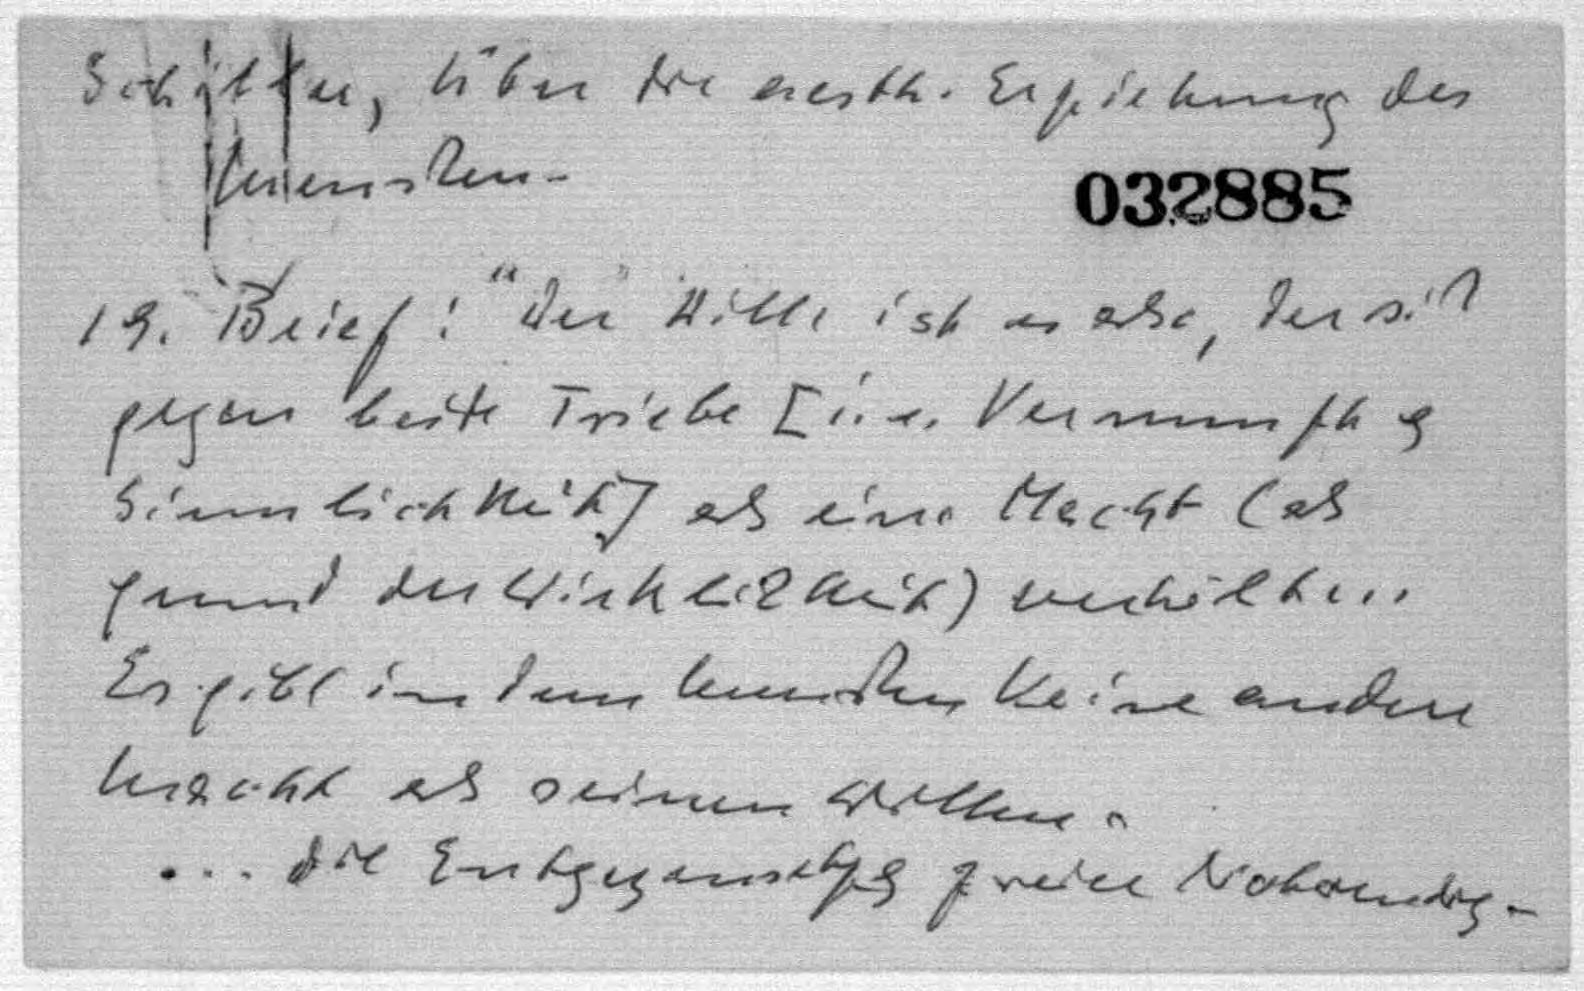 Schiller, Über die aesth. Erziehung des
Menschen.
032885
19. Brief: "Der Wille ist es also, der sich
gegen beide Triebe [i.e. Vernunft &
Sinnlichkeit] als eine Macht (als
grund der Wirklichkeit) verhält...
Es gibt in dem Menschen keine andere
Macht als seinen Willen.
... die Entgegensetzg zweier Notwendig-